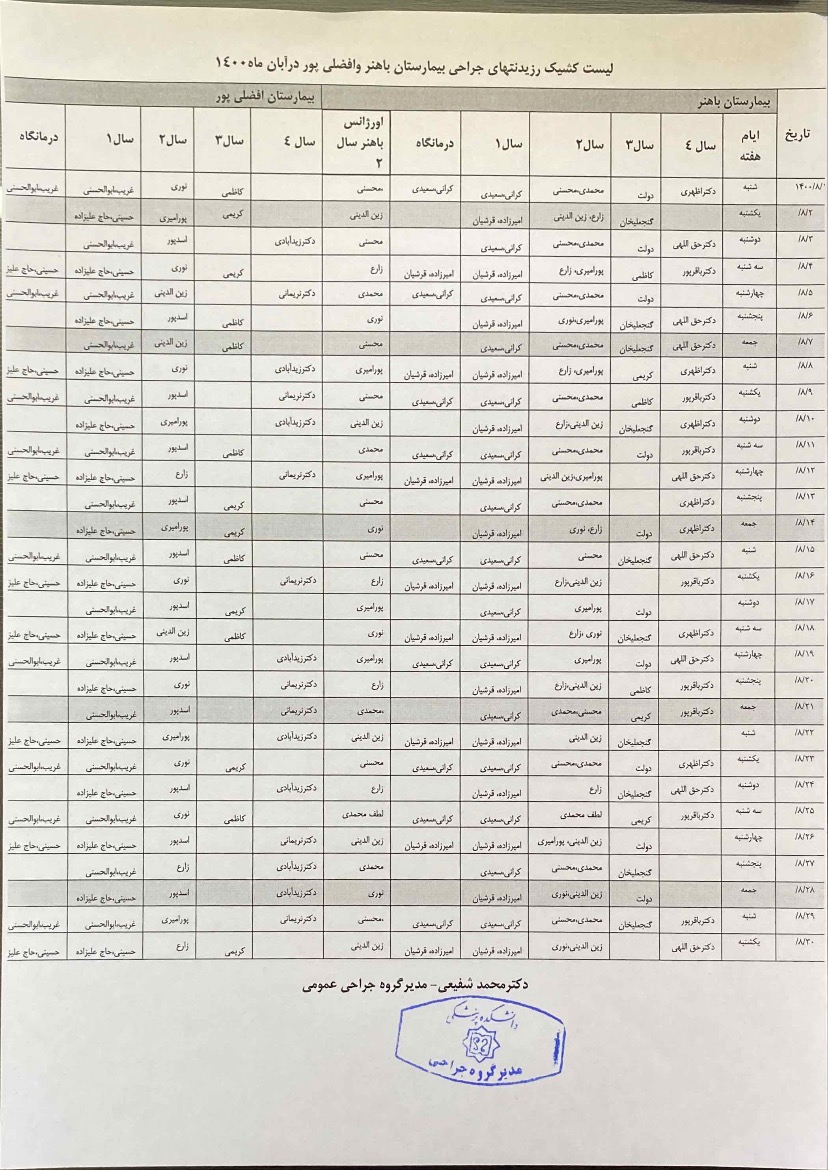 لیست کشیک رزیدنتهای جراحی بیمارستان باهنر وافضلی پور درآبان ماه۱٤۰۰
بیمارستان باهنر بیمارستان افضلی پور
تاریخ ایام هفته سال ٤ سال۳ سال۲ سال۱ درمانگاه اورژانس باهنر سال ۲ سال ٤ سال۳ سال۲ سال۱ درمانگاه
۱۴۰۰/۸/ شنبه دکتراظهری دولت محمدی،محسنی کرانی،سعیدی کرانی،سعیدی ،محسنی کاظمی نوری غریب،ابوالحسنی غریب،ابوالحسنی
/۸/۲ یکشنبه گنجعلیخان زارع، زین الدینی امیرزاده، قرشیان زین الدینی کریمی پورامیری حسینی،حاج علیزاده
/۸/۳ دوشنبه دکترحق اللهی دولت محمدی،محسنی کرانی،سعیدی محسنی دکترزیدآبادی اسدپور غریب،ابوالحسنی
/۸/۴ سه شنبه دکترباقرپور کاظمی پورامیری، زارع امیرزاده، قرشیان امیرزاده، قرشیان زارع کریمی نوری حسینی،حاج علیزاده حسینی،حاج علیز
/۸/۵ چهارشنبه دولت محمدی،محسنی کرانی،سعیدی کرانی،سعیدی محمدی دکترنریمانی زین الدینی غریب،ابوالحسنی غریب،ابوالحسنی
/۸/۶ پنجشنبه دکترحق اللهی گنجعلیخان پورامیری،نوری امیرزاده، قرشیان نوری کاظمی اسدپور حسینی،حاج علیزاده
/۸/۷ جمعه دکترحق اللهی گنجعلیخان محمدی،محسنی کرانی،سعیدی محسنی کاظمی زین الدینی غریب،ابوالحسنی
/۸/۸ شنبه دکتراظهری کریمی پورامیری، زارع امیرزاده، قرشیان امیرزاده، قرشیان پورامیری دکترزیدآبادی نوری حسینی،حاج علیزاده حسینی،حاج علیز
/۸/۹ یکشنبه دکترباقرپور کاظمی محمدی،محسنی کرانی،سعیدی کرانی،سعیدی محسنی دکترنریمانی اسدپور غریب،ابوالحسنی غریب،ابوالحسنی
/۸/۱۰ دوشنبه دکتراظهری گنجعلیخان زین الدینی،زارع امیرزاده، قرشیان زین الدینی دکترزیدآبادی پورامیری حسینی،حاج علیزاده
/۸/۱۱ سه شنبه دکترباقرپور دولت محمدی،محسنی کرانی،سعیدی کرانی،سعیدی محمدی کاظمی اسدپور غریب،ابوالحسنی غریب،ابوالحسنی
/۸/۱۲ چهارشنبه دکترحق اللهی پورامیری،زین الدینی امیرزاده، قرشیان امیرزاده، قرشیان پورامیری دکترنریمانی زارع حسینی،حاج علیزاده حسینی،حاج علیز
/۸/۱۳ پنجشنبه دکتراظهری محمدی،محسنی کرانی،سعیدی محسنی کریمی اسدپور غریب،ابوالحسنی
/۸/۱۴ جمعه دکتراظهری دولت زارع، نوری امیرزاده، قرشیان نوری کریمی پورامیری حسینی،حاج علیزاده
/۸/۱۵ شنبه دکترحق اللهی گنجعلیخان محسنی کرانی،سعیدی کرانی،سعیدی محسنی کاظمی اسدپور غریب،ابوالحسنی غریب،ابوالحسنی
/۸/۱۶ یکشنبه دکترباقرپور زین الدینی،زارع امیرزاده، قرشیان امیرزاده، قرشیان زارع دکترنریمانی نوری حسینی،حاج علیزاده حسینی،حاج علیز
/۸/۱۷ دوشنبه دولت پورامیری کرانی،سعیدی پورامیری کریمی اسدپور غریب،ابوالحسنی
/۸/۱۸ سه شنبه دکتراظهری گنجعلیخان نوری ،زارع امیرزاده، قرشیان امیرزاده، قرشیان نوری کاظمی زین الدینی حسینی،حاج علیزاده حسینی،حاج علیز
/۸/۱۹ چهارشنبه دکترحق اللهی دولت پورامیری کرانی،سعیدی کرانی،سعیدی پورامیری دکترزیدآبادی اسدپور غریب،ابوالحسنی غریب،ابوالحسنی
/۸/۲۰ پنجشنبه دکترباقرپور کاظمی زین الدینی،زارع امیرزاده، قرشیان زارع دکترنریمانی نوری حسینی،حاج علیزاده
/۸/۲۱ جمعه دکترباقرپور کریمی محسنی،محمدی کرانی،سعیدی ،محمدی دکترنریمانی اسدپور غریب،ابوالحسنی
/۸/۲۲ شنبه گنجعلیخان زین الدینی امیرزاده، قرشیان امیرزاده، قرشیان زین الدینی دکترزیدآبادی پورامیری حسینی،حاج علیزاده حسینی،حاج علیز
/۸/۲۳ یکشنبه دکتراظهری دولت محمدی،محسنی کرانی،سعیدی کرانی،سعیدی محسنی کریمی نوری غریب،ابوالحسنی غریب،ابوالحسنی
/۸/۲۴ دوشنبه دکترحق اللهی گنجعلیخان زارع امیرزاده، قرشیان زارع دکترزیدآبادی اسدپور حسینی،حاج علیزاده
/۸/۲۵ سه شنبه دکترباقرپور کریمی لطف محمدی کرانی،سعیدی کرانی،سعیدی لطف محمدی کاظمی نوری غریب،ابوالحسنی غریب،ابوالحسنی
/۸/۲۶ چهارشنبه دولت زین الدینی، پورامیری امیرزاده، قرشیان امیرزاده، قرشیان زین الدینی دکترنریمانی اسدپور حسینی،حاج علیزاده حسینی،حاج علیز
/۸/۲۷ پنجشنبه گنجعلیخان محمدی،محسنی کرانی،سعیدی محمدی دکترزیدآبادی زارع غریب،ابوالحسنی
/۸/۲۸ جمعه دولت زین الدینی،نوری امیرزاده، قرشیان نوری دکترزیدآبادی اسدپور حسینی،حاج علیزاده
/۸/۲۹ شنبه دکترباقرپور گنجعلیخان محمدی،محسنی کرانی،سعیدی کرانی،سعیدی ،محسنی دکترنریمانی پورامیری غریب،ابوالحسنی غریب،ابوالحسنی
/۸/۳۰ یکشنبه دکترحق اللهی زین الدینی،نوری امیرزاده، قرشیان امیرزاده، قرشیان زین الدینی کریمی زارع حسینی،حاج علیزاده حسینی،حاج علیز
دکترمحمد شفیعی- مدیرگروه جراحی عمومی
دانشکده پزشکی
مدیر گروه جراحی